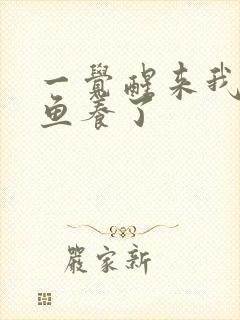 一覺醒来我
鱼养了
嚴家新